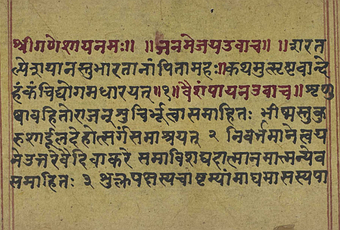 श्रीगणेशायनमः॥ ॥जनमेजयउवाच॥ ॥शरत
ल्पेशयानस्तुभारतानांपितामहः॥कथमुत्सृष्टवान्दे
हंकंचिद्योगमधारयत्॥१॥वैशंपायनउवाच॥ शृणु
ष्वावहितोराजन्शुचिर्भूत्वासमाहितः भीष्मस्तुकु
रुशार्दूलदेहोत्सर्गंसमाश्रयत् २ निवर्तमानेत्वय
नेउत्तरेवैदिवाकरे समाविशघदात्मानमात्मन्येव
समाहितः ३ शुक्लपक्षस्यचाष्टम्यांमाघमासस्यपा